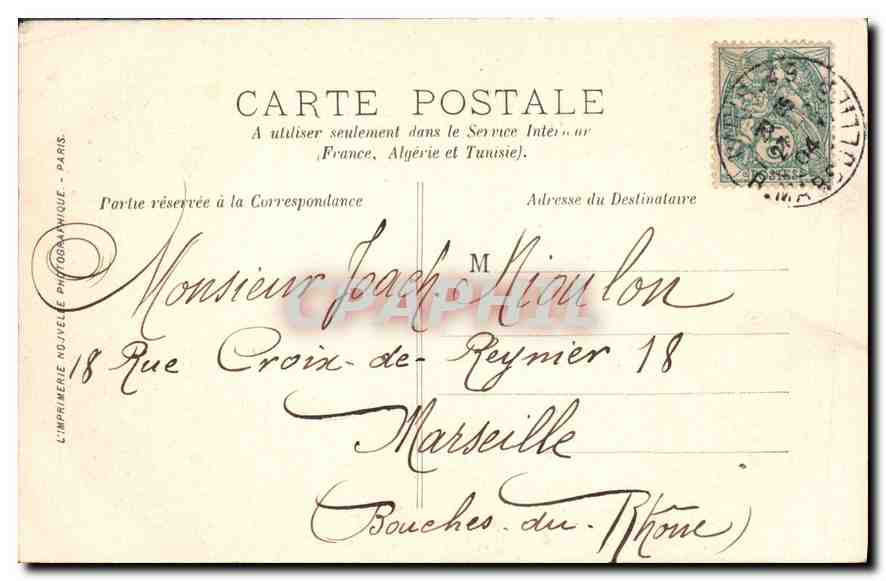 CARTE POSTALE
A utiliser seulement dans le Service Intérieur
(France, Algérie et Tunisie).
Partie réservée à la Correspondance
Adresse du Destinataire
M
Monsieur Joach. Mioulon
18 Rue Croix-de-Reynier 18
Marseille
(Bouches-du-Rhône)
L'IMPRIMERIE NOUVELLE PHOTOGRAPHIQUE - PARIS.
CPAPHIL
04